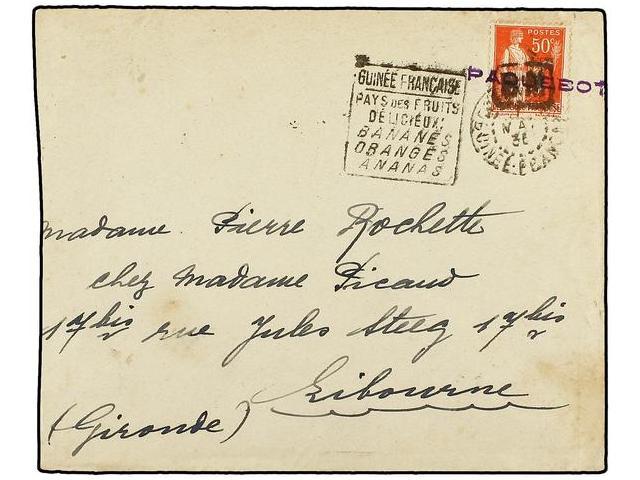 POSTES
50c
PAQUEBOT
GUINÉE FRANÇAISE
PAYS DES FRUITS
DÉLICIEUX
BANANES
ORANGES
ANANAS
GUINÉE-FRANÇAISE
Madame Pierre Rochette
chez Madame Picaud
17bis rue Jules Steeg 17bis
Libourne
(Gironde)